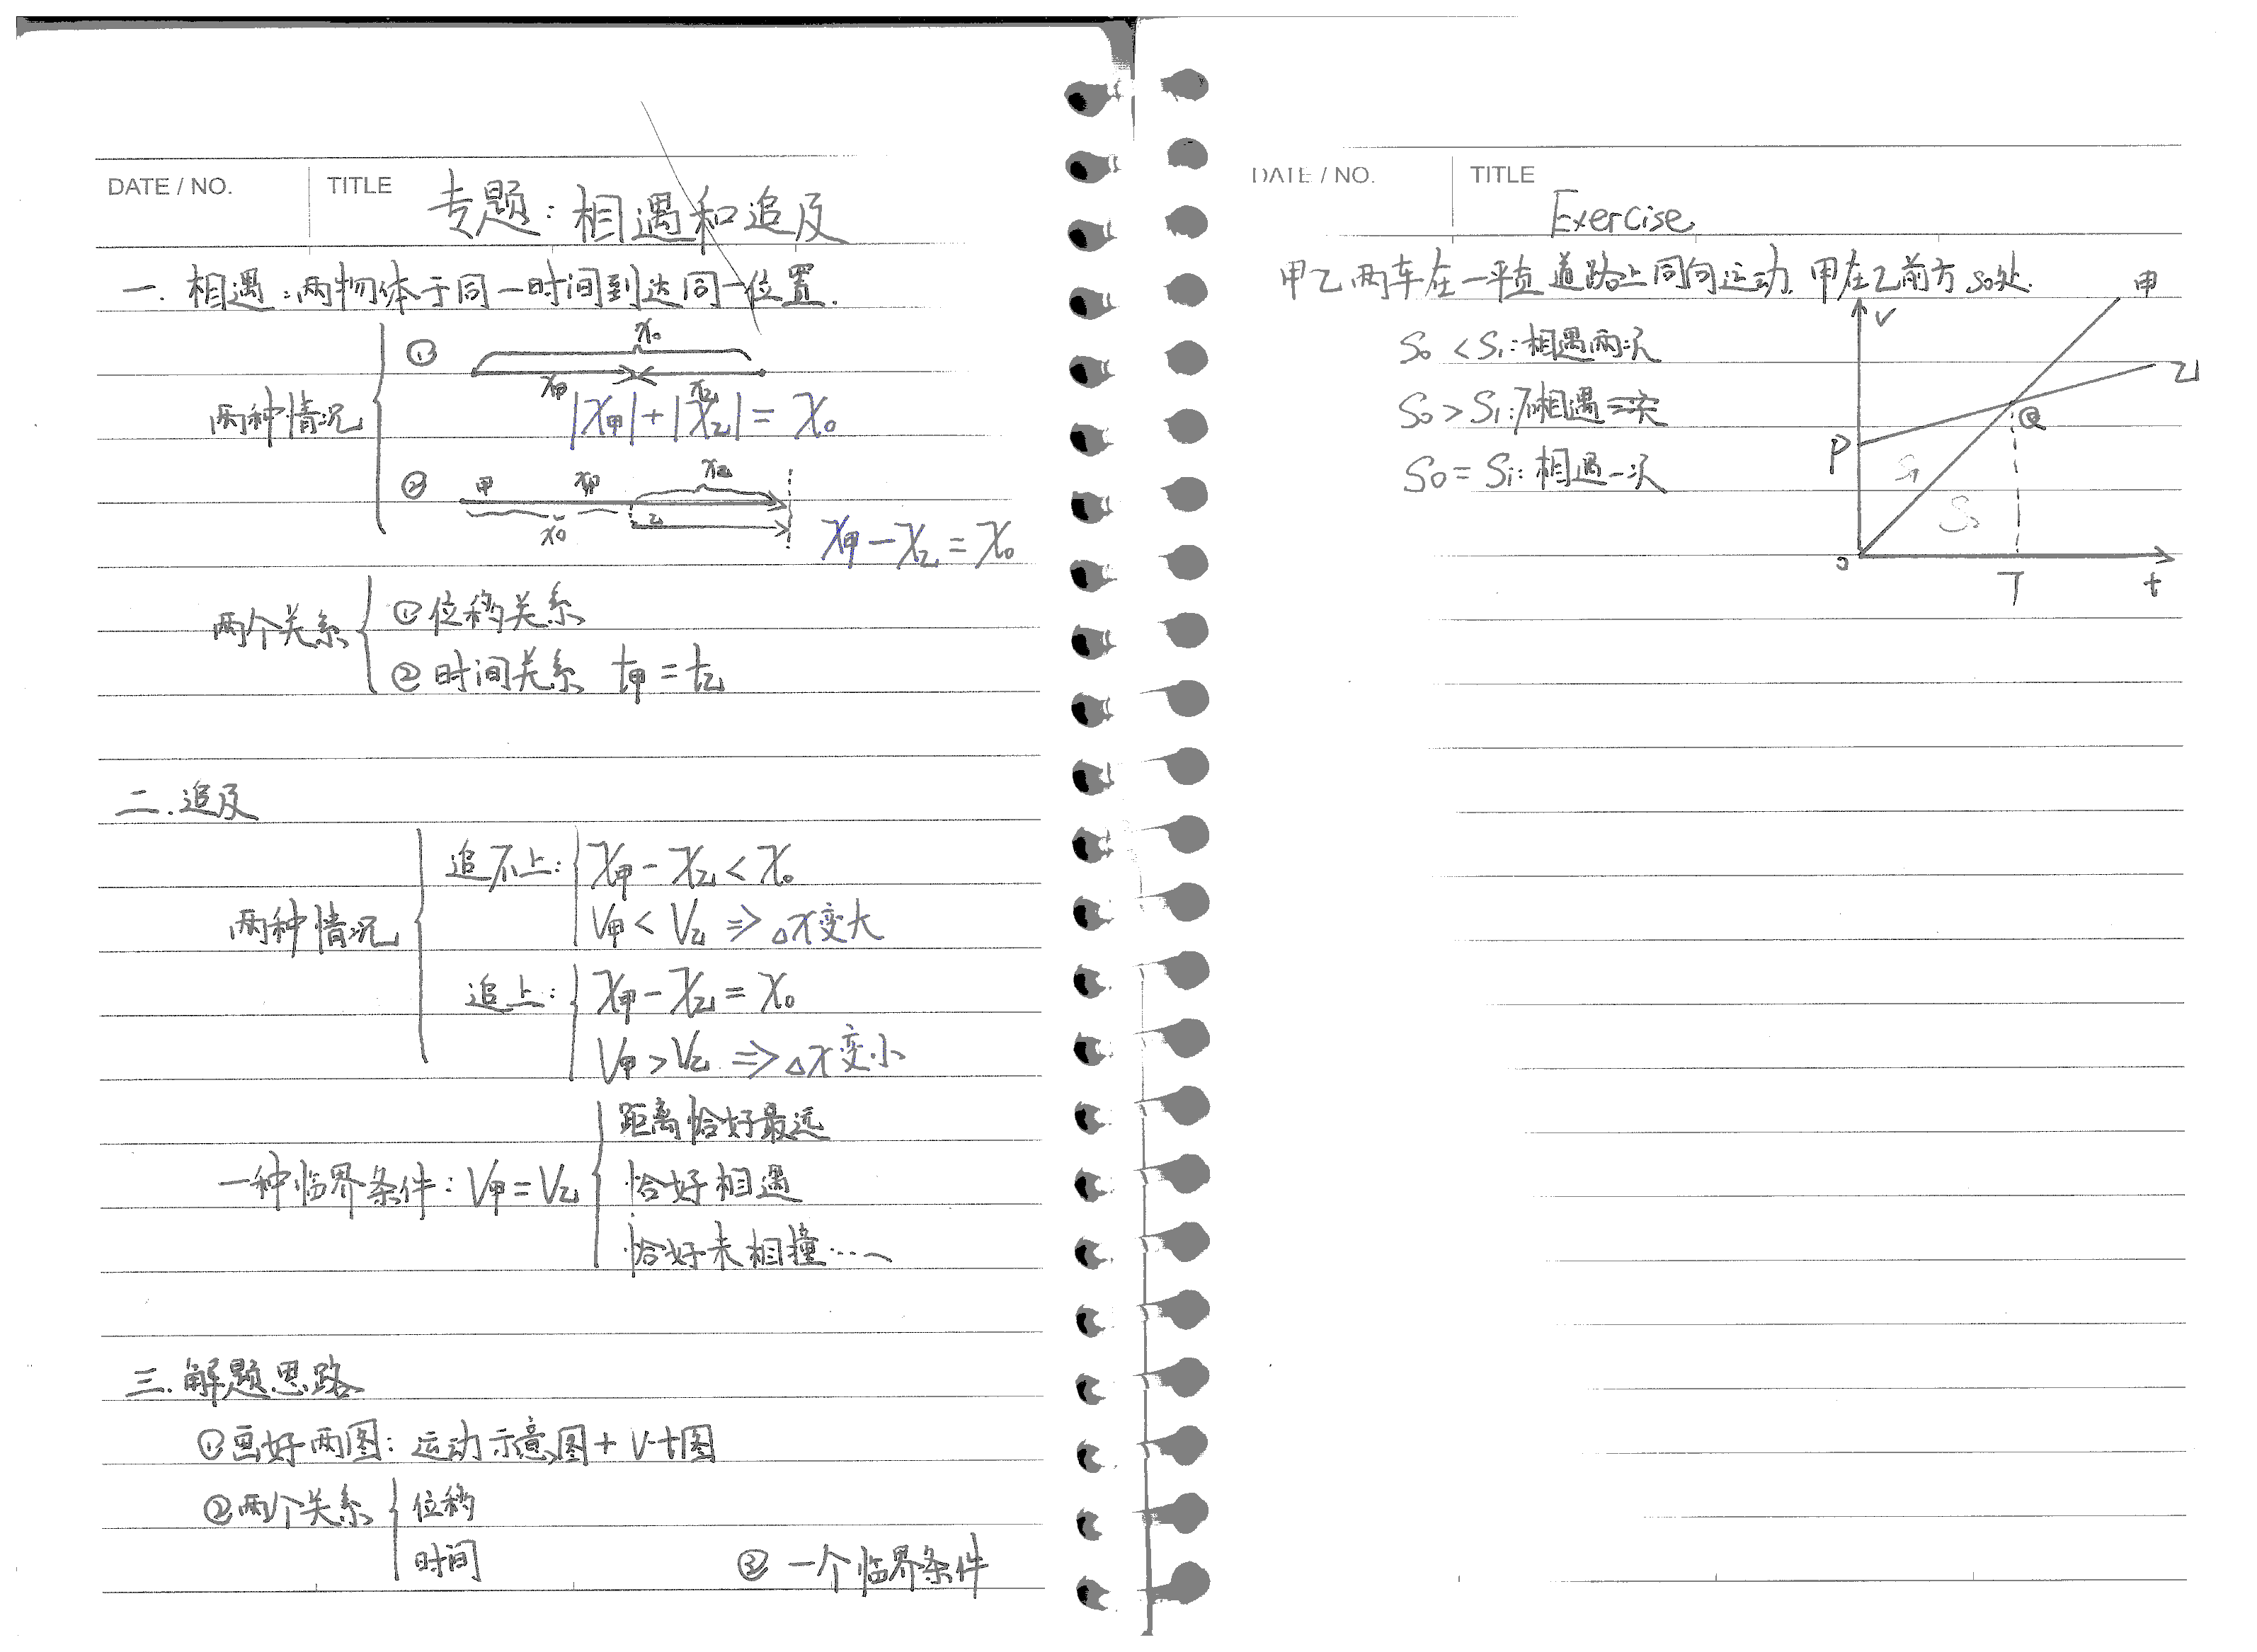 DATE / NO.
TITLE
专题：相遇和追及
一. 相遇：两物体于同一时间到达同一位置.
两种情况
①
x₀
x甲
x乙
|x甲|+|x乙|= x₀
②
甲
x甲
x乙
x₀
乙
x甲-x乙=x₀
两个关系
①位移关系
②时间关系 t甲=t乙
二. 追及
两种情况
追不上:
x甲-x乙<x₀
V甲< V乙 ⇒ △x变大
追上:
x甲-x乙= x₀
V甲>V乙 ⇒ △x变小
一种临界条件: V甲=V乙
距离恰好最远
恰好相遇
恰好未相撞……
三. 解题思路
①画好两图: 运动示意图+ v-t图
②两个关系
位移
时间
③ 一个临界条件
DATE / NO.
TITLE
Exercise
甲乙两车在一平直道路上同向运动. 甲在乙前方 s₀处.
S₀ <S₁:相遇两次
S₀ > S₁:不相遇
S₀= S₁: 相遇一次
v
甲
乙
P
Q
S₁
S₂
o
T
t